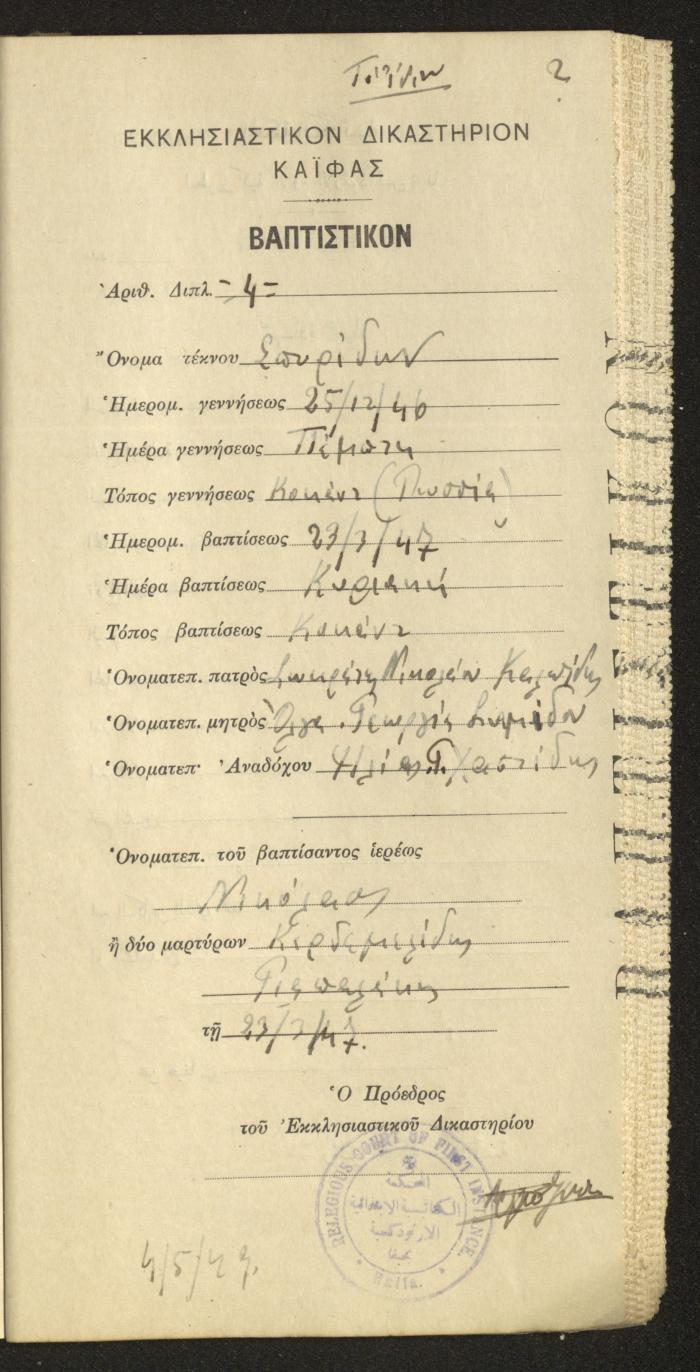 2
ΕΚΚΛΗΣΙΑΣΤΙΚΟΝ ΔΙΚΑΣΤΗΡΙΟΝ
ΚΑΪΦΑΣ
ΒΑΠΤΙΣΤΙΚΟΝ
Ἀριθ. Διπλ. -4-
Ὄνομα τέκνου Σπυρίδων
Ἡμερομ. γεννήσεως 25/12/46
Ἡμέρα γεννήσεως Πέμπτη
Τόπος γεννήσεως Κοκάντ (Ρωσσία)
Ἡμερομ. βαπτίσεως 23/3/47
Ἡμέρα βαπτίσεως Κυριακή
Τόπος βαπτίσεως Κοκάντ
Ὀνοματεπ. πατρὸς Σωκράτη Νικολάου
Ὀνοματεπ. μητρὸς Ὄλγα Γεωργία
Ὀνοματεπ. Ἀναδόχου Ἠλίας Γ.
Ὀνοματεπ. τοῦ βαπτίσαντος ἱερέως
Νικόλαος
ἢ δύο μαρτύρων
τῇ 23/3/47.
Ὁ Πρόεδρος
τοῦ Ἐκκλησιαστικοῦ Δικαστηρίου
RELEGIOUS COURT OF FIRST INSTANCE.
المحكمة
الكنائسية الابتدائية
الارثوذكسية
بحيفا
Haifa.
4/5/49.
ΒΑΠΤΙΣΤΙΚΟΝ